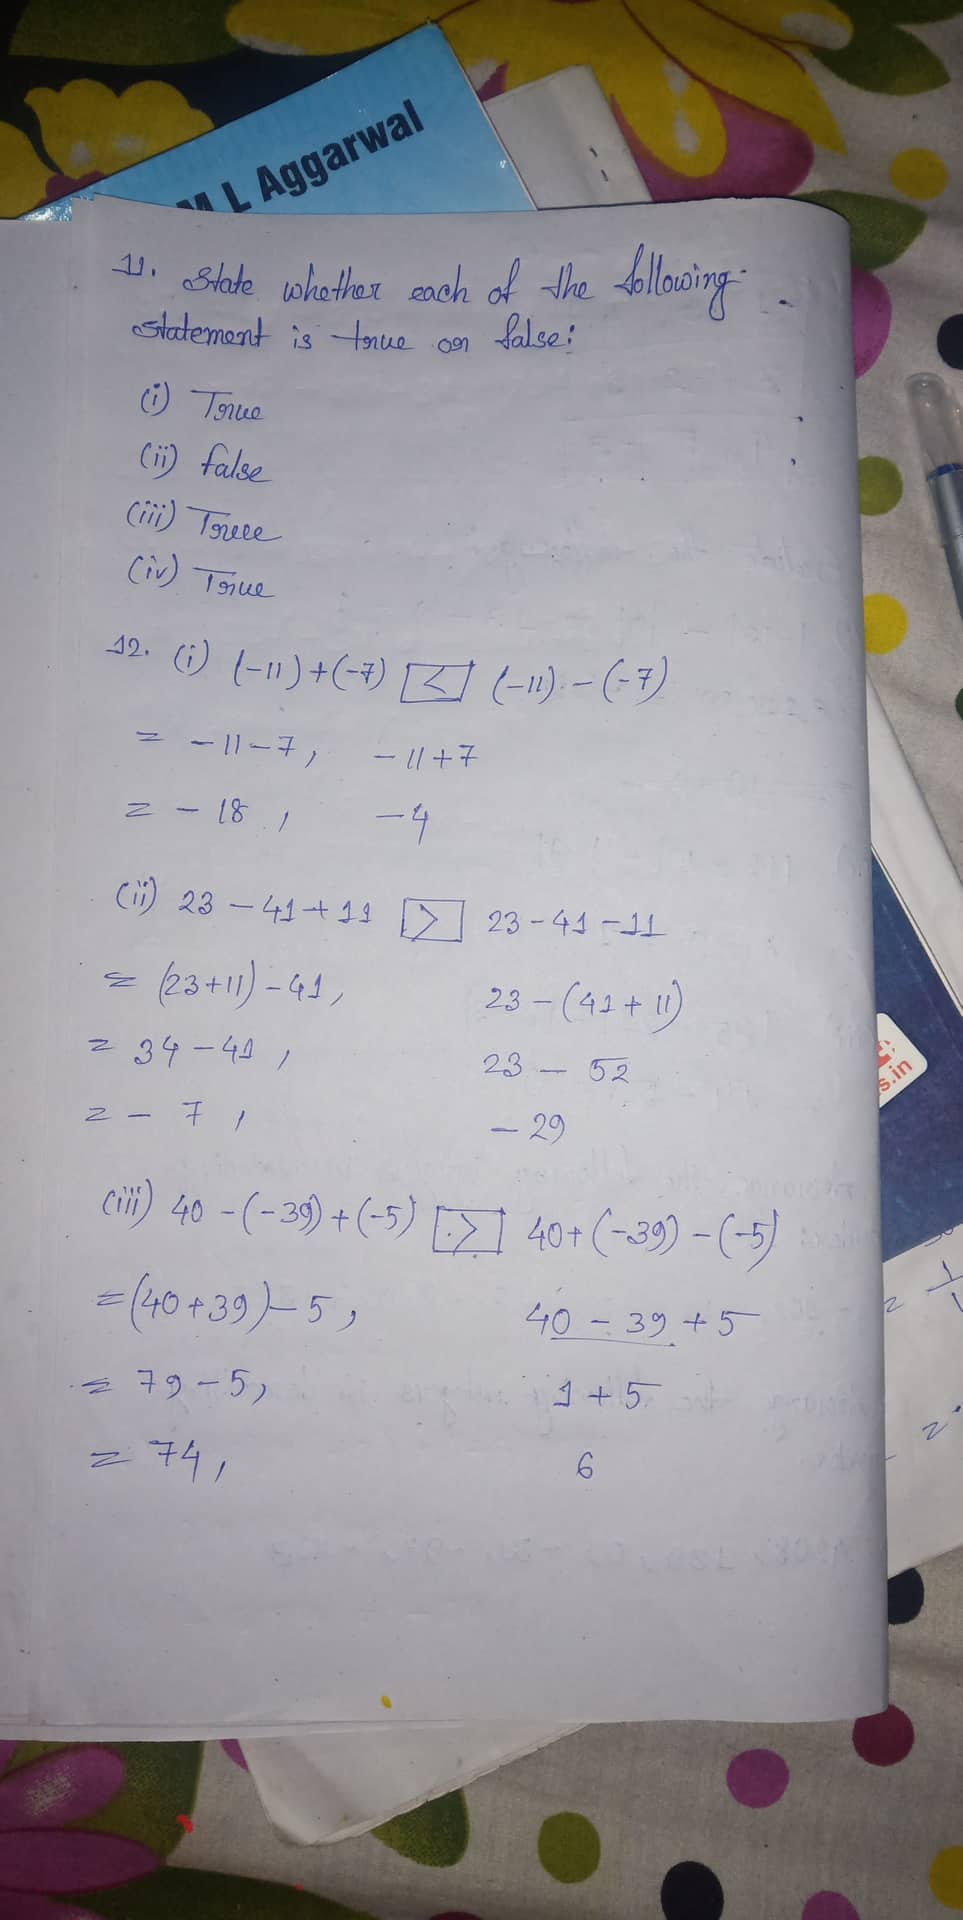 M L Aggarwal
11. State whether each of the following
statement is true or false:
(i) True
(ii) false
(iii) True
(iv) True
12. (i) (-11)+(-7) < (-11)-(-7)
= -11-7, -11+7
= -18, -4
(ii) 23-41+11 > 23-41-11
= (23+11)-41, 23-(41+11)
= 34-41, 23-52
= -7, -29
(iii) 40-(-39)+(-5) > 40+(-39)-(-5)
=(40+39)-5, 40-39+5
= 79-5, 1+5
= 74, 6
s.in